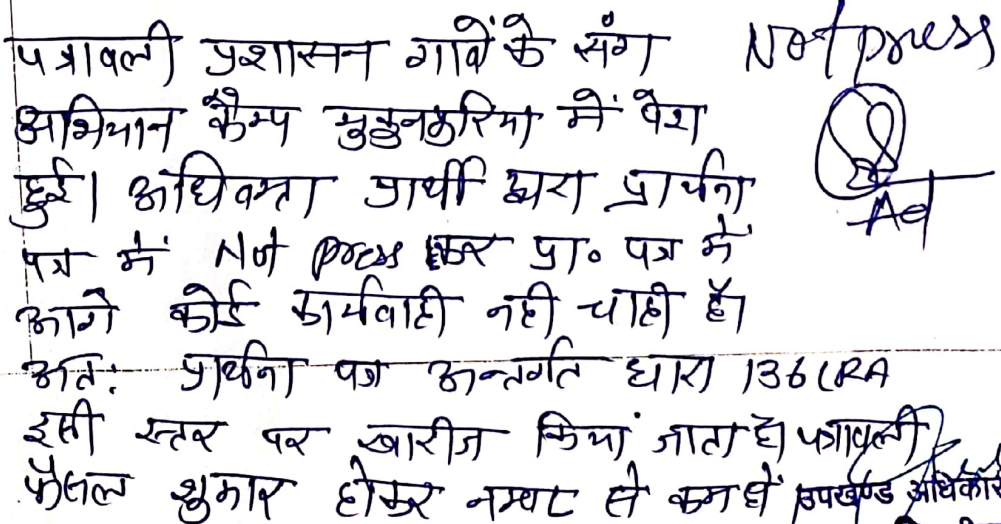 पत्रावली प्रशासन गावों के संग
Not press
अभियान कैम्प में पेश
हुई। अधिवक्ता प्रार्थी द्वारा प्रार्थना
Ad
पत्र में Not press कर प्रा० पत्र में
आगे कोई कार्यवाही नही चाही है।
अतः प्रार्थना पत्र अन्तर्गत धारा 136 LRA
इसी स्तर पर खारीज किया जाता है। पत्रावली
फैसल शुमार होकर नम्बर से कम हो
उपखण्ड अधिकारी